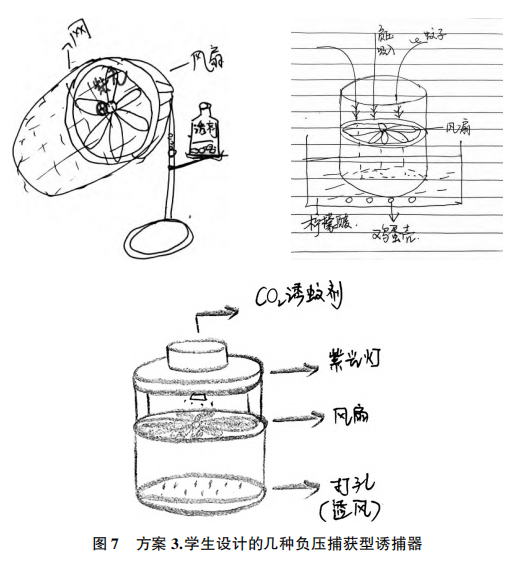 网
风扇
诱剂
负压
吸入
蚊子
风扇
柠檬酸
鸡蛋壳
CO₂诱蚊剂
紫光灯
风扇
打孔
(透风)
图 7 方案 3.学生设计的几种负压捕获型诱捕器